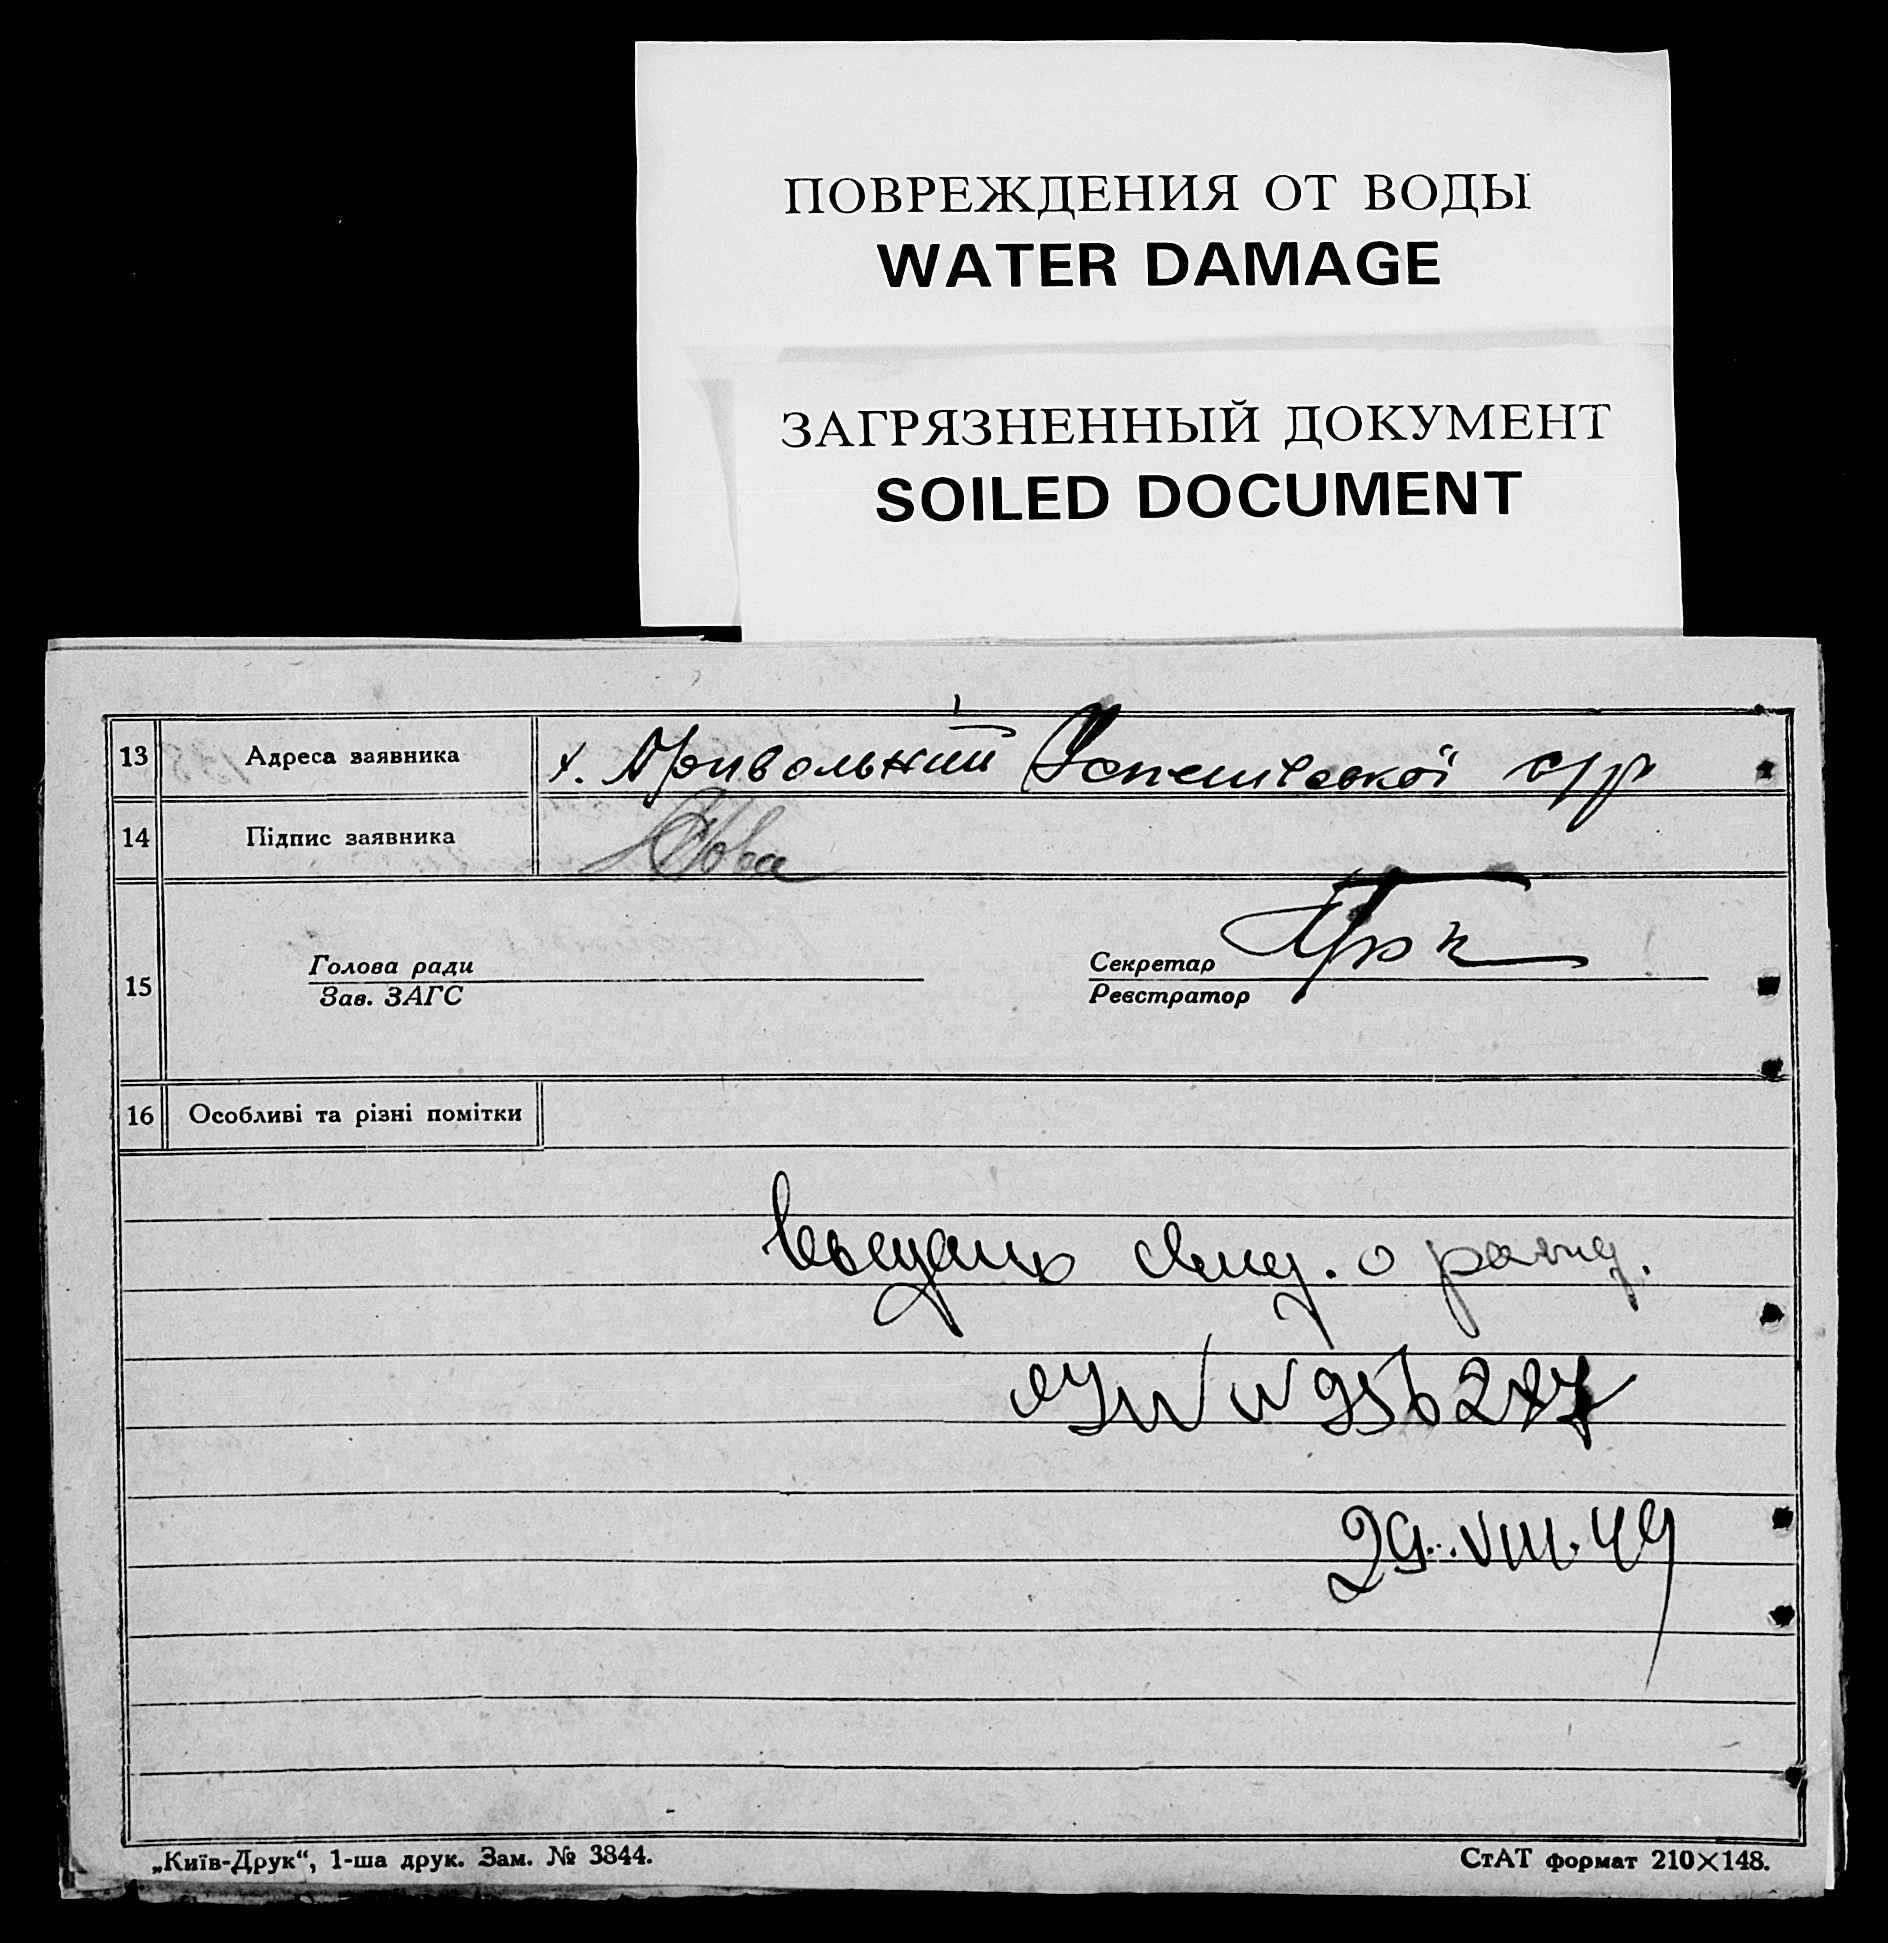 ПОВРЕЖДЕНИЯ ОТ ВОДЫ
WATER DAMAGE
ЗАГРЯЗНЕННЫЙ ДОКУМЕНТ
SOILED DOCUMENT
13 Адреса заявника х. Привольний с/р
14 Підпис заявника
15 Голова ради Секретар
Зав. ЗАГС Реєстратор
16 Особливі та різні помітки
о
956277
29.VIII.49
„Київ-Друк“, 1-ша друк. Зам. № 3844. СтАТ формат 210×148.